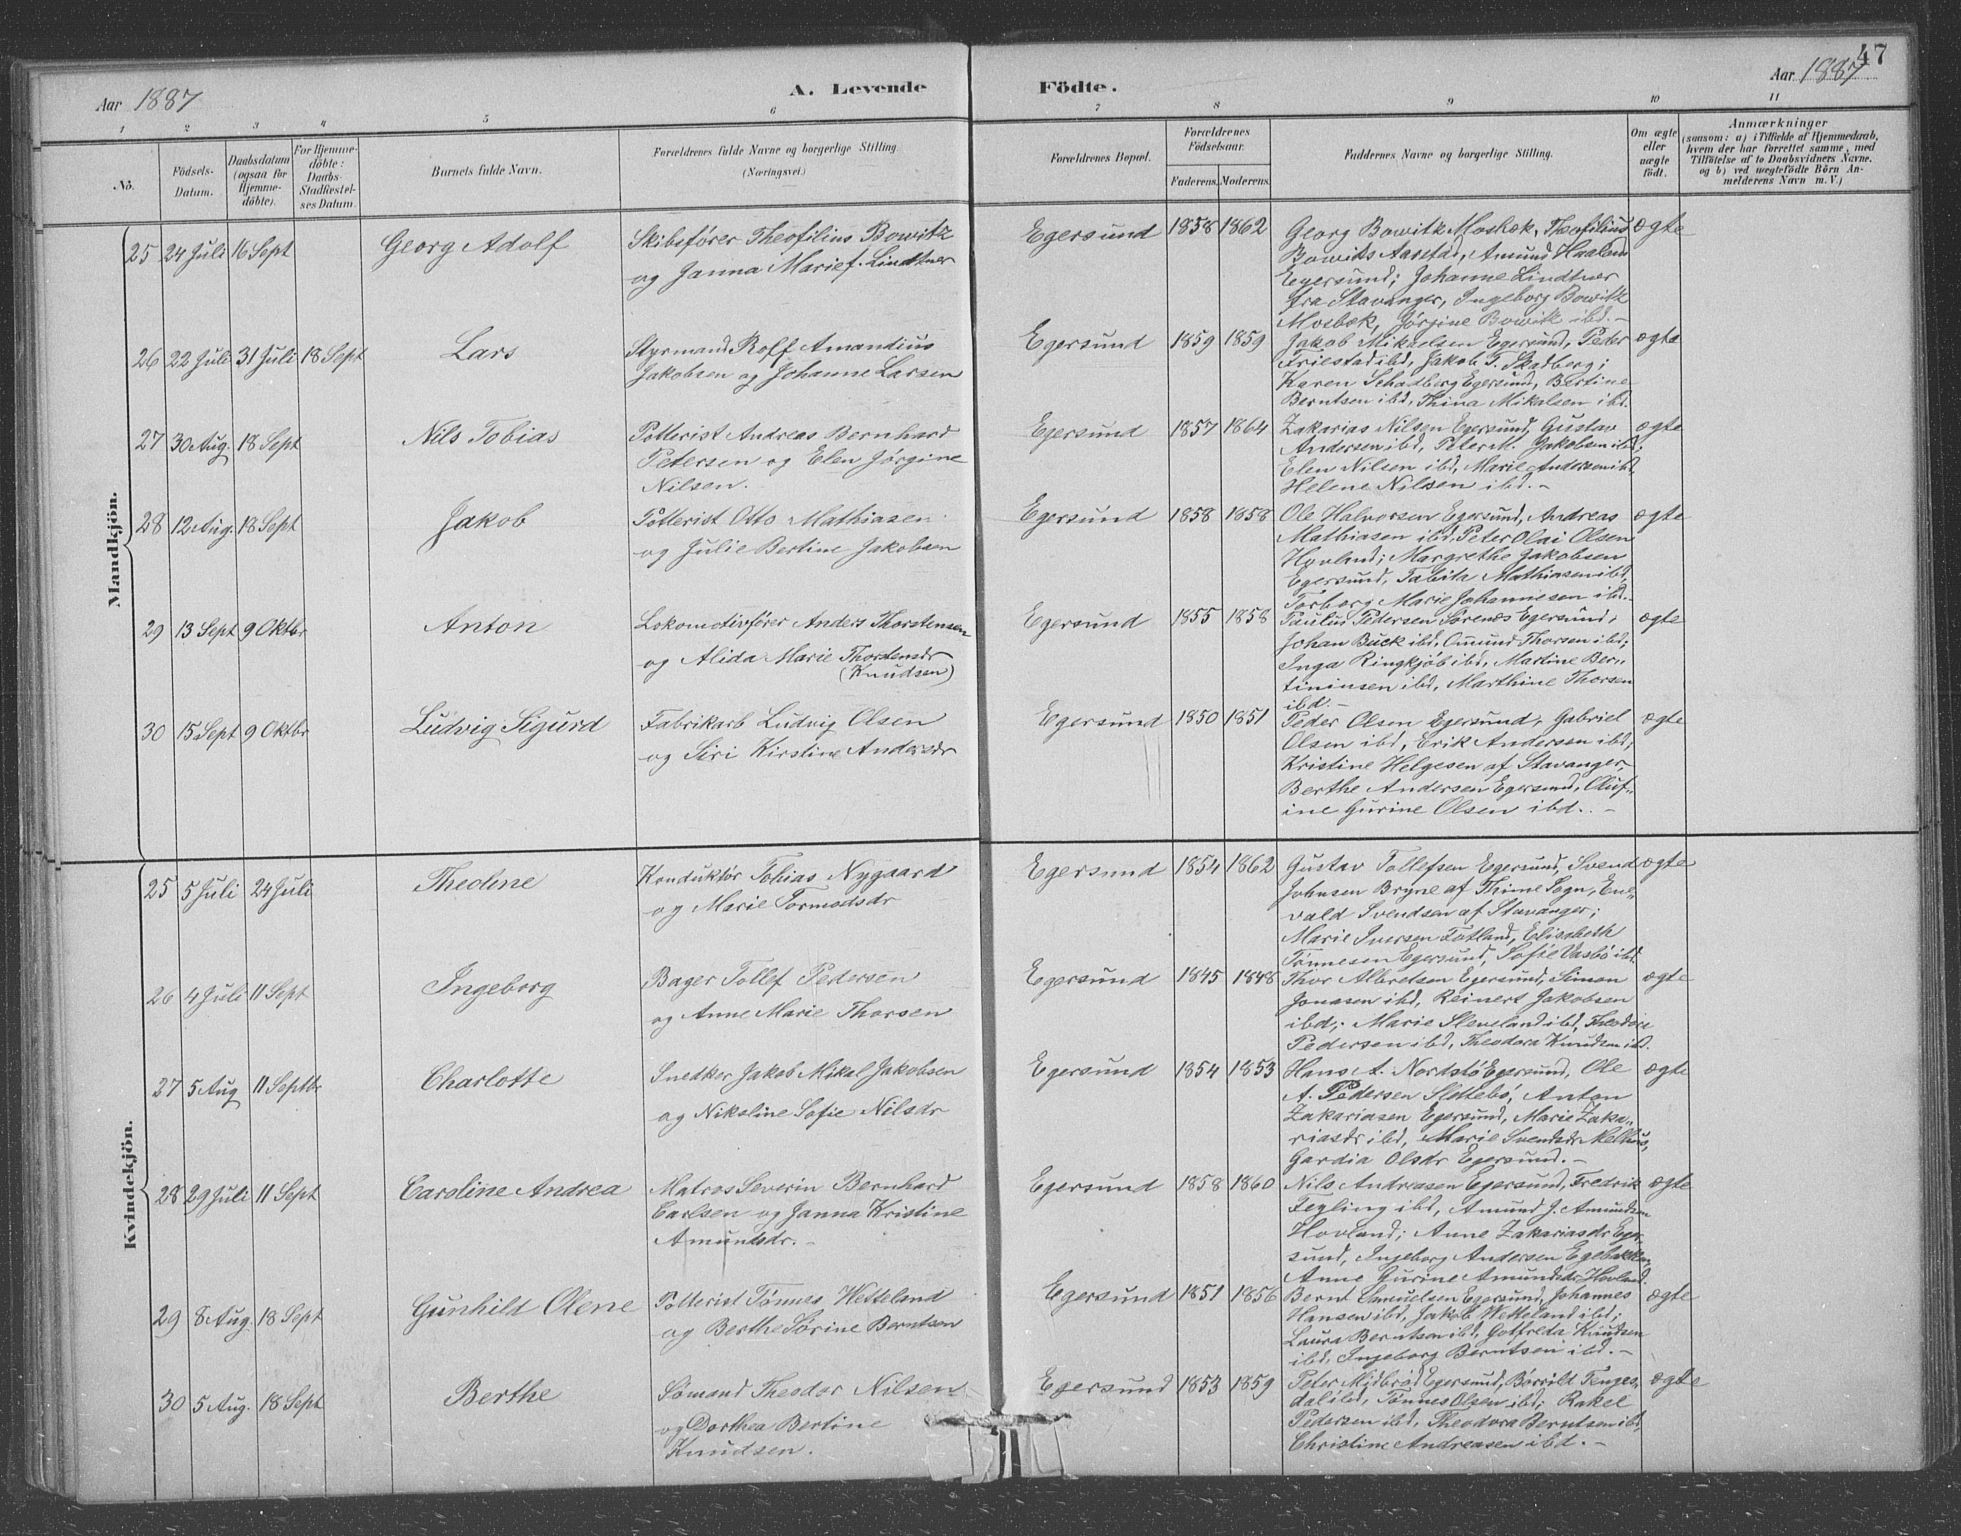 47
Aar 1887
A. Levende Födte.
Aar 1887
1 2 3 4 5 6 7 8 9 10 11
No.
Födsels-Datum.
Daabsdatum (ogsaa for Hjemmedöbte).
For Hjemmedöbte: Daabs-Stadfæstelses Datum.
Barnets fulde Navn.
Forældrenes fulde Navne og borgerlige Stilling. (Næringsvei.)
Forældrenes Bopæl.
Forældrenes Födselsaar.
Faderens. Moderens.
Faddernes Navne og borgerlige Stilling.
Om ægte eller uægte födt.
Anmærkninger (saasom: a) i Tilfælde af Hjemmedaab, hvem der har forrettet samme, med Tilföielse af to Daabsvidners Navne, og b) ved uægtefödte Börn Anmelderens Navn m. V.)
Mandkjön.
25 24 Juli 16 Sept Georg Adolf
Skibsfører Theofilius Bowitz
og Janna Marie f. Lindtner
Egersund 1858 1862
Georg Bowitz Mosbæk, Theofilius
Bowitz Aarstad, Amund Haaland
Egersund; Johanne Lindtner
fra Stavanger, Ingeborg Bowitz
Mosbæk, Jørgine Bowitz ibd.-
ægte
26 22 Juli 31 Juli 18 Sept Lars
Styrmand Rolf Amandius
Jakobsen og Johanne Larsen
Egersund 1859 1859
Jakob Mikalsen Egersund, Peder
Friestad ibd, Jakob T. Skadberg;
Karen Schadberg Egersund, Bertine
Berntsen ibd, Thina Mikalsen ibd.
ægte
27 30 Aug. 18 Sept Nils Tobias
Potterist Andreas Bernhard
Petersen og Elen Jørgine
Nilsen.
Egersund 1857 1864
Zakarias Nilsen Egersund, Gustav
Andersen ibd, Peter M. Jakobsen ibd;
Elen Nilsen ibd, Marie Andersen ibd,
Helene Nilsen ibd.-
ægte
28 12 Aug. 18 Sept Jakob
Potterist Otto Mathiasen
og Julie Bertine Jakobsen
Egersund 1858 1858
Ole Halvorsen Egersund, Andreas
Mathiasen ibd, Peter Olai Olsen
Hovland; Margrethe Jakobsen
Egersund, Tabita Mathiasen ibd,
Torborg Marie Johannesen ibd.-
ægte
29 13 Sept 9 Oktbr Anton
Lokomotivfører Anders Thorstensen
og Alida Marie Thorstensdr
(Knudsen)
Egersund 1855 1858
Paulus Pedersen Sørenæs Egersund,
Johan Buck ibd, Omund Thorsen ibd;
Inga Ringkjøb ibd, Martine Ber-
tininsen ibd, Marthine Thorsen
ibd.-
ægte
30 15 Sept 9 Oktbr Ludvig Sigurd
Fabrikarb Ludvig Olsen
og Siri Kirstine Andersdr
Egersund 1850 1851
Peder Olsen Egersund, Gabriel
Olsen ibd, Erik Andersen ibd;
Kristine Helgesen af Stavanger,
Berthe Andersen Egersund, Oluf-
ine Gurine Olsen ibd.-
ægte
Kvindekjön.
25 5 Juli 24 Juli Theoline
Konduktør Tobias Nygaard
og Marie Tormodsdr
Egersund 1854 1862
Gustav Tollefsen Egersund, Svend
Johnsen Bryne af Thime Sogn, Ene-
vald Svendsen af Stavanger;
Marie Iversen Fotland, Elisabeth
Tønnesen Egersund, Sofie Vasbø ibd.
ægte
26 4 Juli 11 Sept Ingeborg
Bager Tollef Pedersen
og Anne Marie Thorsen
Egersund 1845 1848
Thor Albretsen Egersund, Simon
Jonasen ibd, Reinert Jakobsen
ibd; Marie Sleveland ibd, Theodore
Pedersen ibd, Theodora Knudsen ibd.
ægte
27 5 Aug 11 Septbr Charlotte
Snedker Jakob Mikal Jakobsen
og Nikoline Sofie Nilsdr
Egersund 1854 1853
Hans A. Nordstø Egersund, Ole
A. Pedersen Slettebø, Anton
Zakariasen Egersund, Marie Zaka-
riasdr ibd, Marie Svendsdr Melhus,
Gardia Olsdr Egersund.-
ægte
28 29 Juli 11 Sept Caroline Andrea
Matros Severin Bernhard
Carlsen og Janna Kristine
Amundsdr.-
Egersund 1858 1860
Nils Andreasen Egersund, Fredrik
Feyling ibd, Amund J. Amundsen
Hovland; Anne Zakariasdr Eger-
sund, Ingeborg Andersen Egebakken,
Anne Gurine Amundsdr Hovland.
ægte
29 8 Aug. 18 Sept Gunhild Olene
Potterist Tønnes Wetteland
og Berthe Sørine Berntsen
Egersund 1851 1856
Bernt Samuelsen Egersund, Johannes
Hansen ibd, Jakob Wetteland ibd;
Laura Berntsen ibd, Gotfreda Knudsen
ibd, Ingeborg Berntsen ibd.-
ægte
30 5 Aug. 18 Sept Berthe
Sømand Theodor Nilsen
og Dorthea Bertine
Knudsen.
Egersund 1853 1859
Peter Midbrød Egersund, Børrild Tenges-
dal ibd, Tønnes Olsen ibd; Rakel
Pedersen ibd, Theodora Berntsen ibd,
Christine Andreasen ibd.-
ægte